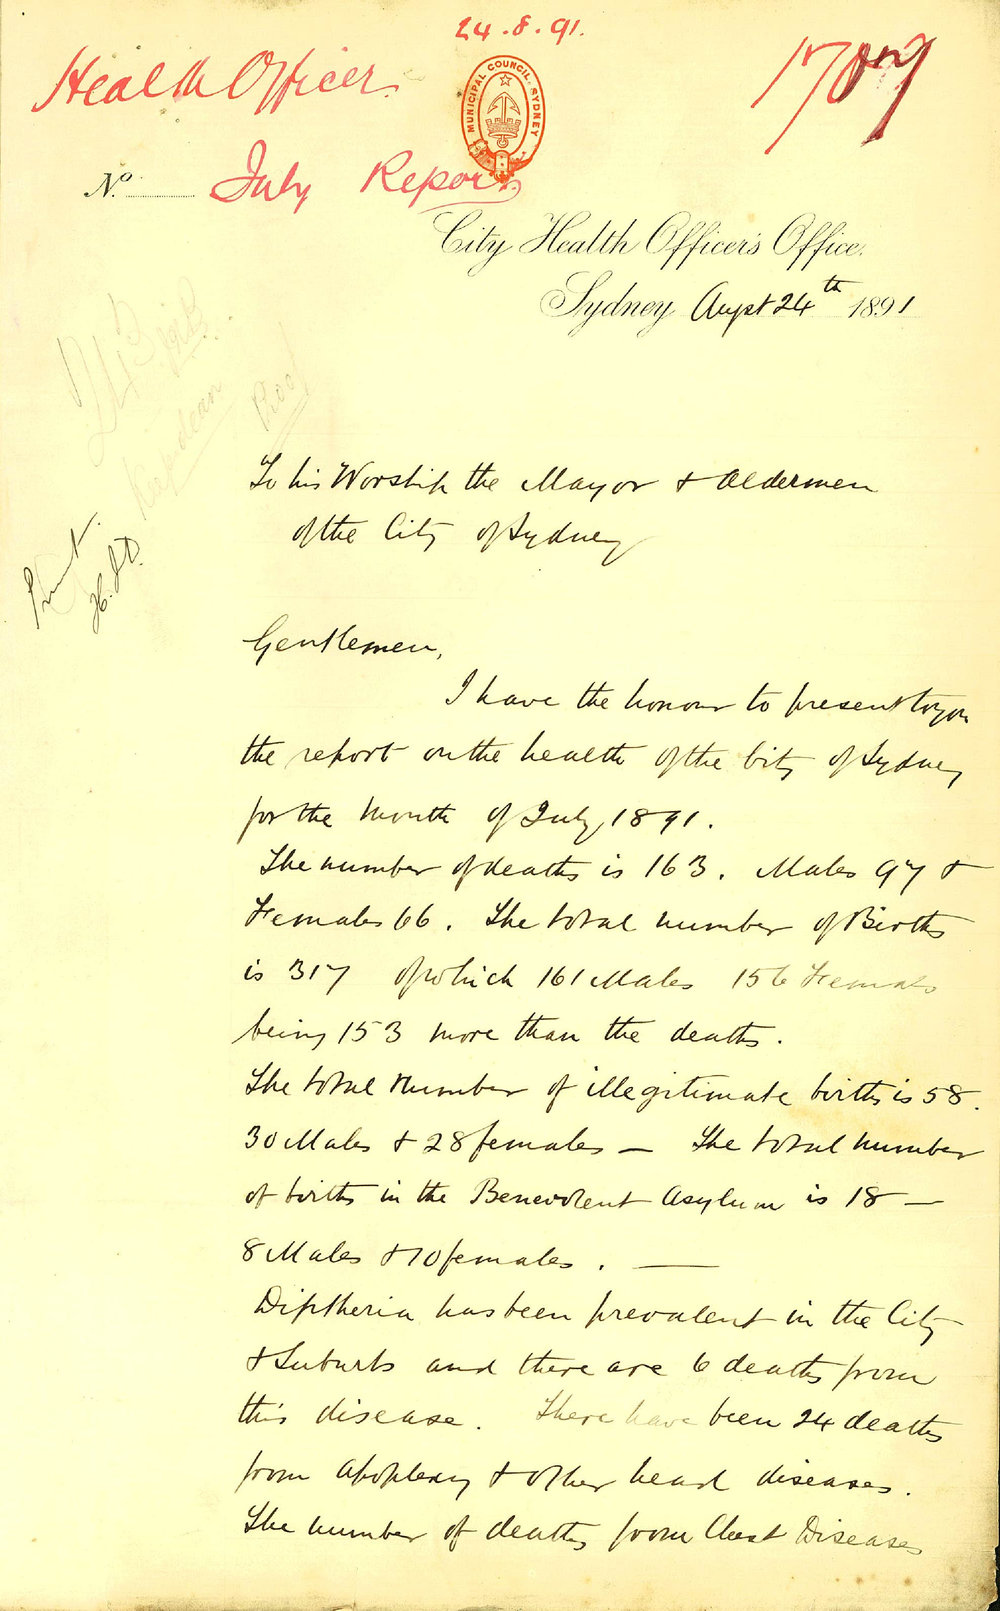 24.8.91.
Health Officer
MUNICIPAL COUNCIL. SYDNEY
No. July Report
City Health Officer's Office.
Sydney Augst 24th 1891
Proof
Print
To his Worship the Mayor & Aldermen
of the City of Sydney
Gentlemen,
I have the honour to present to you
the report on the health of the City of Sydney
for the month of July, 1891.
The number of deaths is 163. Males 97 &
Females 66. The total number of Births
is 317 of which 161 Males 156 Females
being 153 more than the deaths.
The total number of illegitimate births is 58.
30 Males & 28 females — The total number
of births in the Benevolent Asylum is 18 —
8 Males & 10 females. —
Diptheria has been prevalent in the City
& Suburbs and there are 6 deaths from
this disease. There have been 24 deaths
from apoplexy & other head diseases.
The number of deaths from Chest Diseases